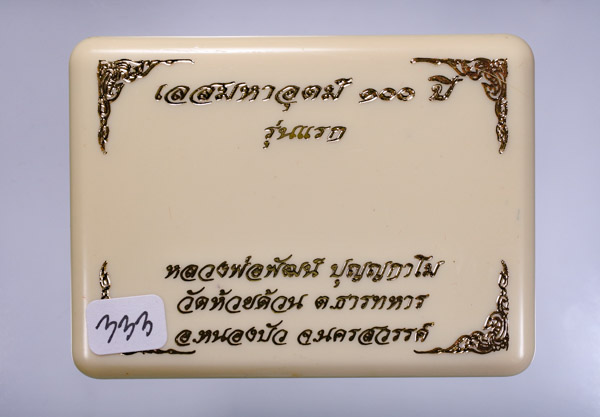 เลสมหาอุตม์ ๑๐๐ ปี
รุ่นแรก
หลวงพ่อพัฒน์ ปุญญกาโม
วัดห้วยด้วน ต.ธารทหาร
อ.หนองบัว จ.นครสวรรค์
333